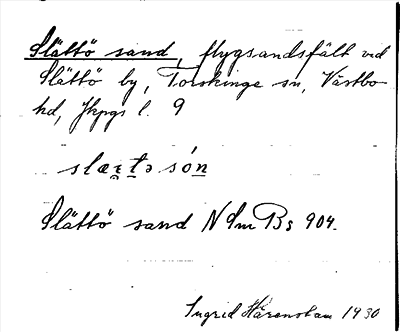 Slättö sand, flygsandsfält vid
Slättö by, Torskinge sn, Västbo
hd, Jkpgs l. 9
slæt̠ə són̠
Slättö sand N Sm Bs 904.
Ingrid Härenstam 1930